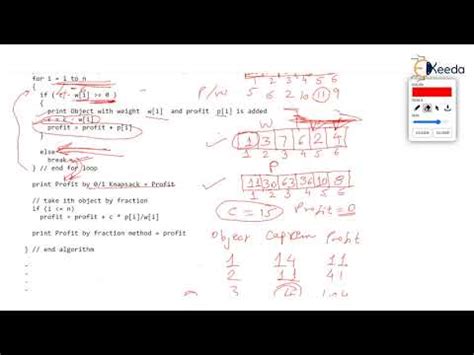 for i = 1 to n
{
if ( c - w[i] >= 0 )
{
print Object with weight w[i] and profit p[i] is added
c = c - w[i]
profit = profit + p[i]
}
else
break
} // end for loop
print Profit by 0/1 Knapsack = Profit
// take ith object by fraction
if (i <= n)
profit = profit + c * p[i]/w[i]
print Profit by fraction method = profit
} // end algorithm
1 2 3 4 5 6
P/w 5 6 2 10 11 9
W
1 3 7 6 2
1 2 3 4 5 6
P
11 30 63 36 10 8
1 2 3 4 5 6
C = 15 Profit = 0
Object Cap Rem Profit
1 14 11
2 11 41
3
Keeda